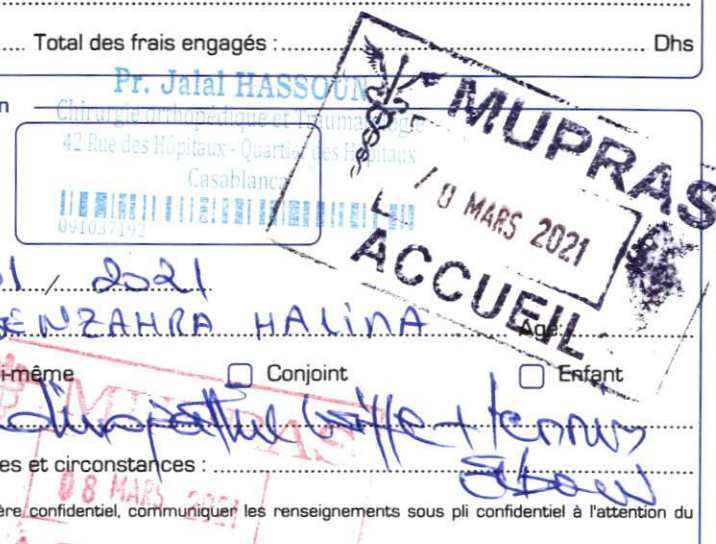 Total des frais engagés : Dhs
Pr. Jalal HASSOUN
Chirurgie orthopédique et Traumatologie
42 Rue des Hôpitaux - Quartier des Hôpitaux
Casablanca
091037192
MUPRAS
0 MARS 2021
ACCUEIL
2021
HALIMA Age:
i-même Conjoint Enfant
MUPRAS
es et circonstances :
08 MARS 2021
ère confidentiel, communiquer les renseignements sous pli confidentiel à l'attention du